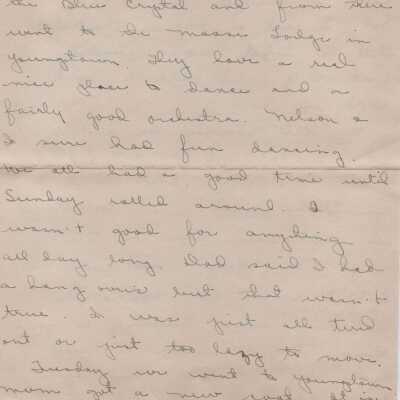 the Blue Crystal and from there
went to the Moose Lodge in
Youngstown. They have a real
nice place to dance and a
fairly good orchestra. Nelson &
I sure had fun dancing.
We all had a good time until
Sunday rolled around. I
wasn't good for anything
all day long. Dad said I had
a hang over but that wasn't
true. I was just all tired
out or just too lazy to move.
Tuesday we went to Youngstown
mom got a new coat. It is